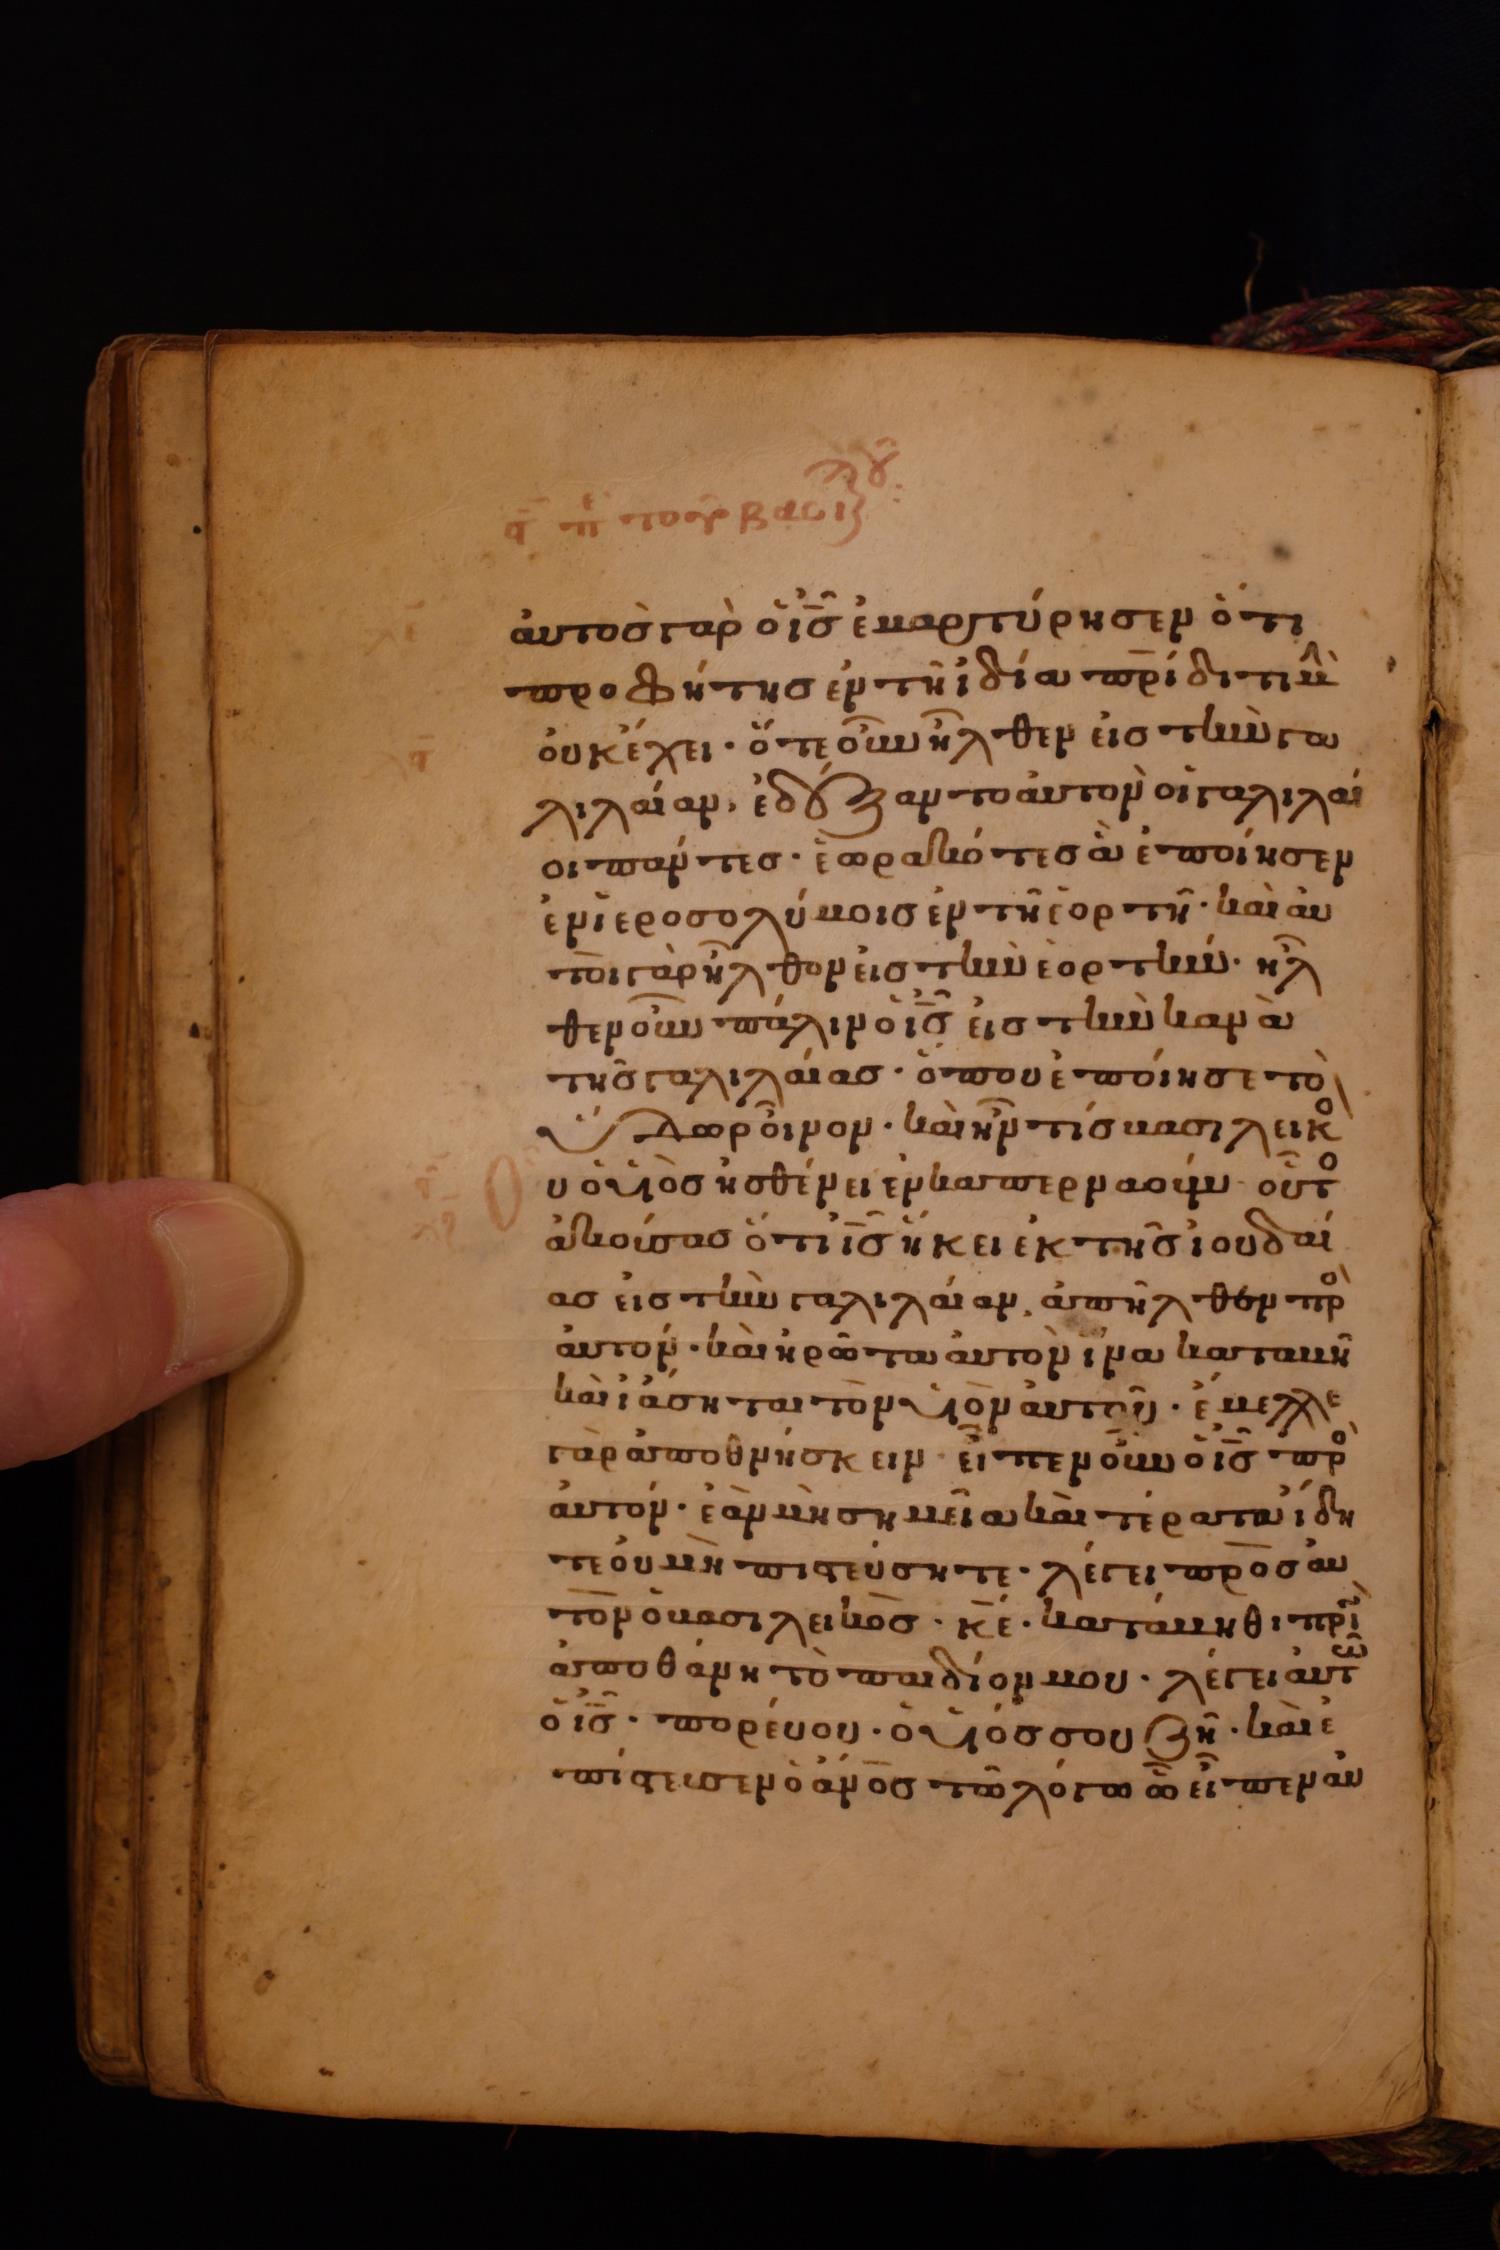 η περὶ τοῦ βασιλικοῦ:
αὐτὸσ γὰρ ὁ ἰσ ἐμαρτύρησεν ὅτι
προφήτησ ἐν τῆ ἰδία πρίδι τιμὴ
οὐκ ἔχει · ὅτε οὖν ἦλθεν εἰσ τὴν γα
λιλαίαν, ἐδέξαντο αὐτὸν οἱ γαλιλαῖ
οι πάντεσ · ἑωρακότεσ ἃ ἐποίησεν
ἐν ἱεροσολύμοισ ἐν τῆ ἑορτῆ · καὶ αὐ
τοὶ γὰρ ἦλθον εἰσ τὴν ἑορτήν · ἦλ
θεν οὖν πάλιν ὁ ἰσ εἰσ τὴν κανὰ
τῆσ γαλιλαίασ · ὅπου ἐποίησε τὸ
ὕδωρ οἶνον · καὶ ἦν τίσ βασιλεικο
υ ὁ υἱὸσ ἠσθένει ἐν καπερναούμ · οὗτο
ἀκούσασ ὅτι ἰσ ἥκει ἐκ τῆσ ἰουδαί
ασ εἰσ τὴν γαλιλαίαν, ἀπῆλθεν προ
αὐτόν · καὶ ἠρῶτα αὐτὸν ἵνα καταβῆ
καὶ ἰάσηται τὸν υἱὸν αὐτοῦ · ἔμελλε
γὰρ ἀποθνήσκειν · εἶπεν οὖν ὁ ἰσ προ
αὐτόν · ἐὰν μὴ σημεῖα καὶ τέρατα ἴδη
τε οὐ μὴ πιστεύσητε · λέγει πρὸσ αὐ
τὸν ὁ βασιλεικὸσ · κέ · κατάβηθι πρὶ
ἀποθάνη τὸ παιδίον μου · λέγει αὐτῶ
ὁ ἰσ · πορεύου · ὁ υἱόσ σου ζῆ · καὶ ἐ
πίστευσεν ὁ ἀνοσ τῶ λόγω ὧ εἶπεν αὐ